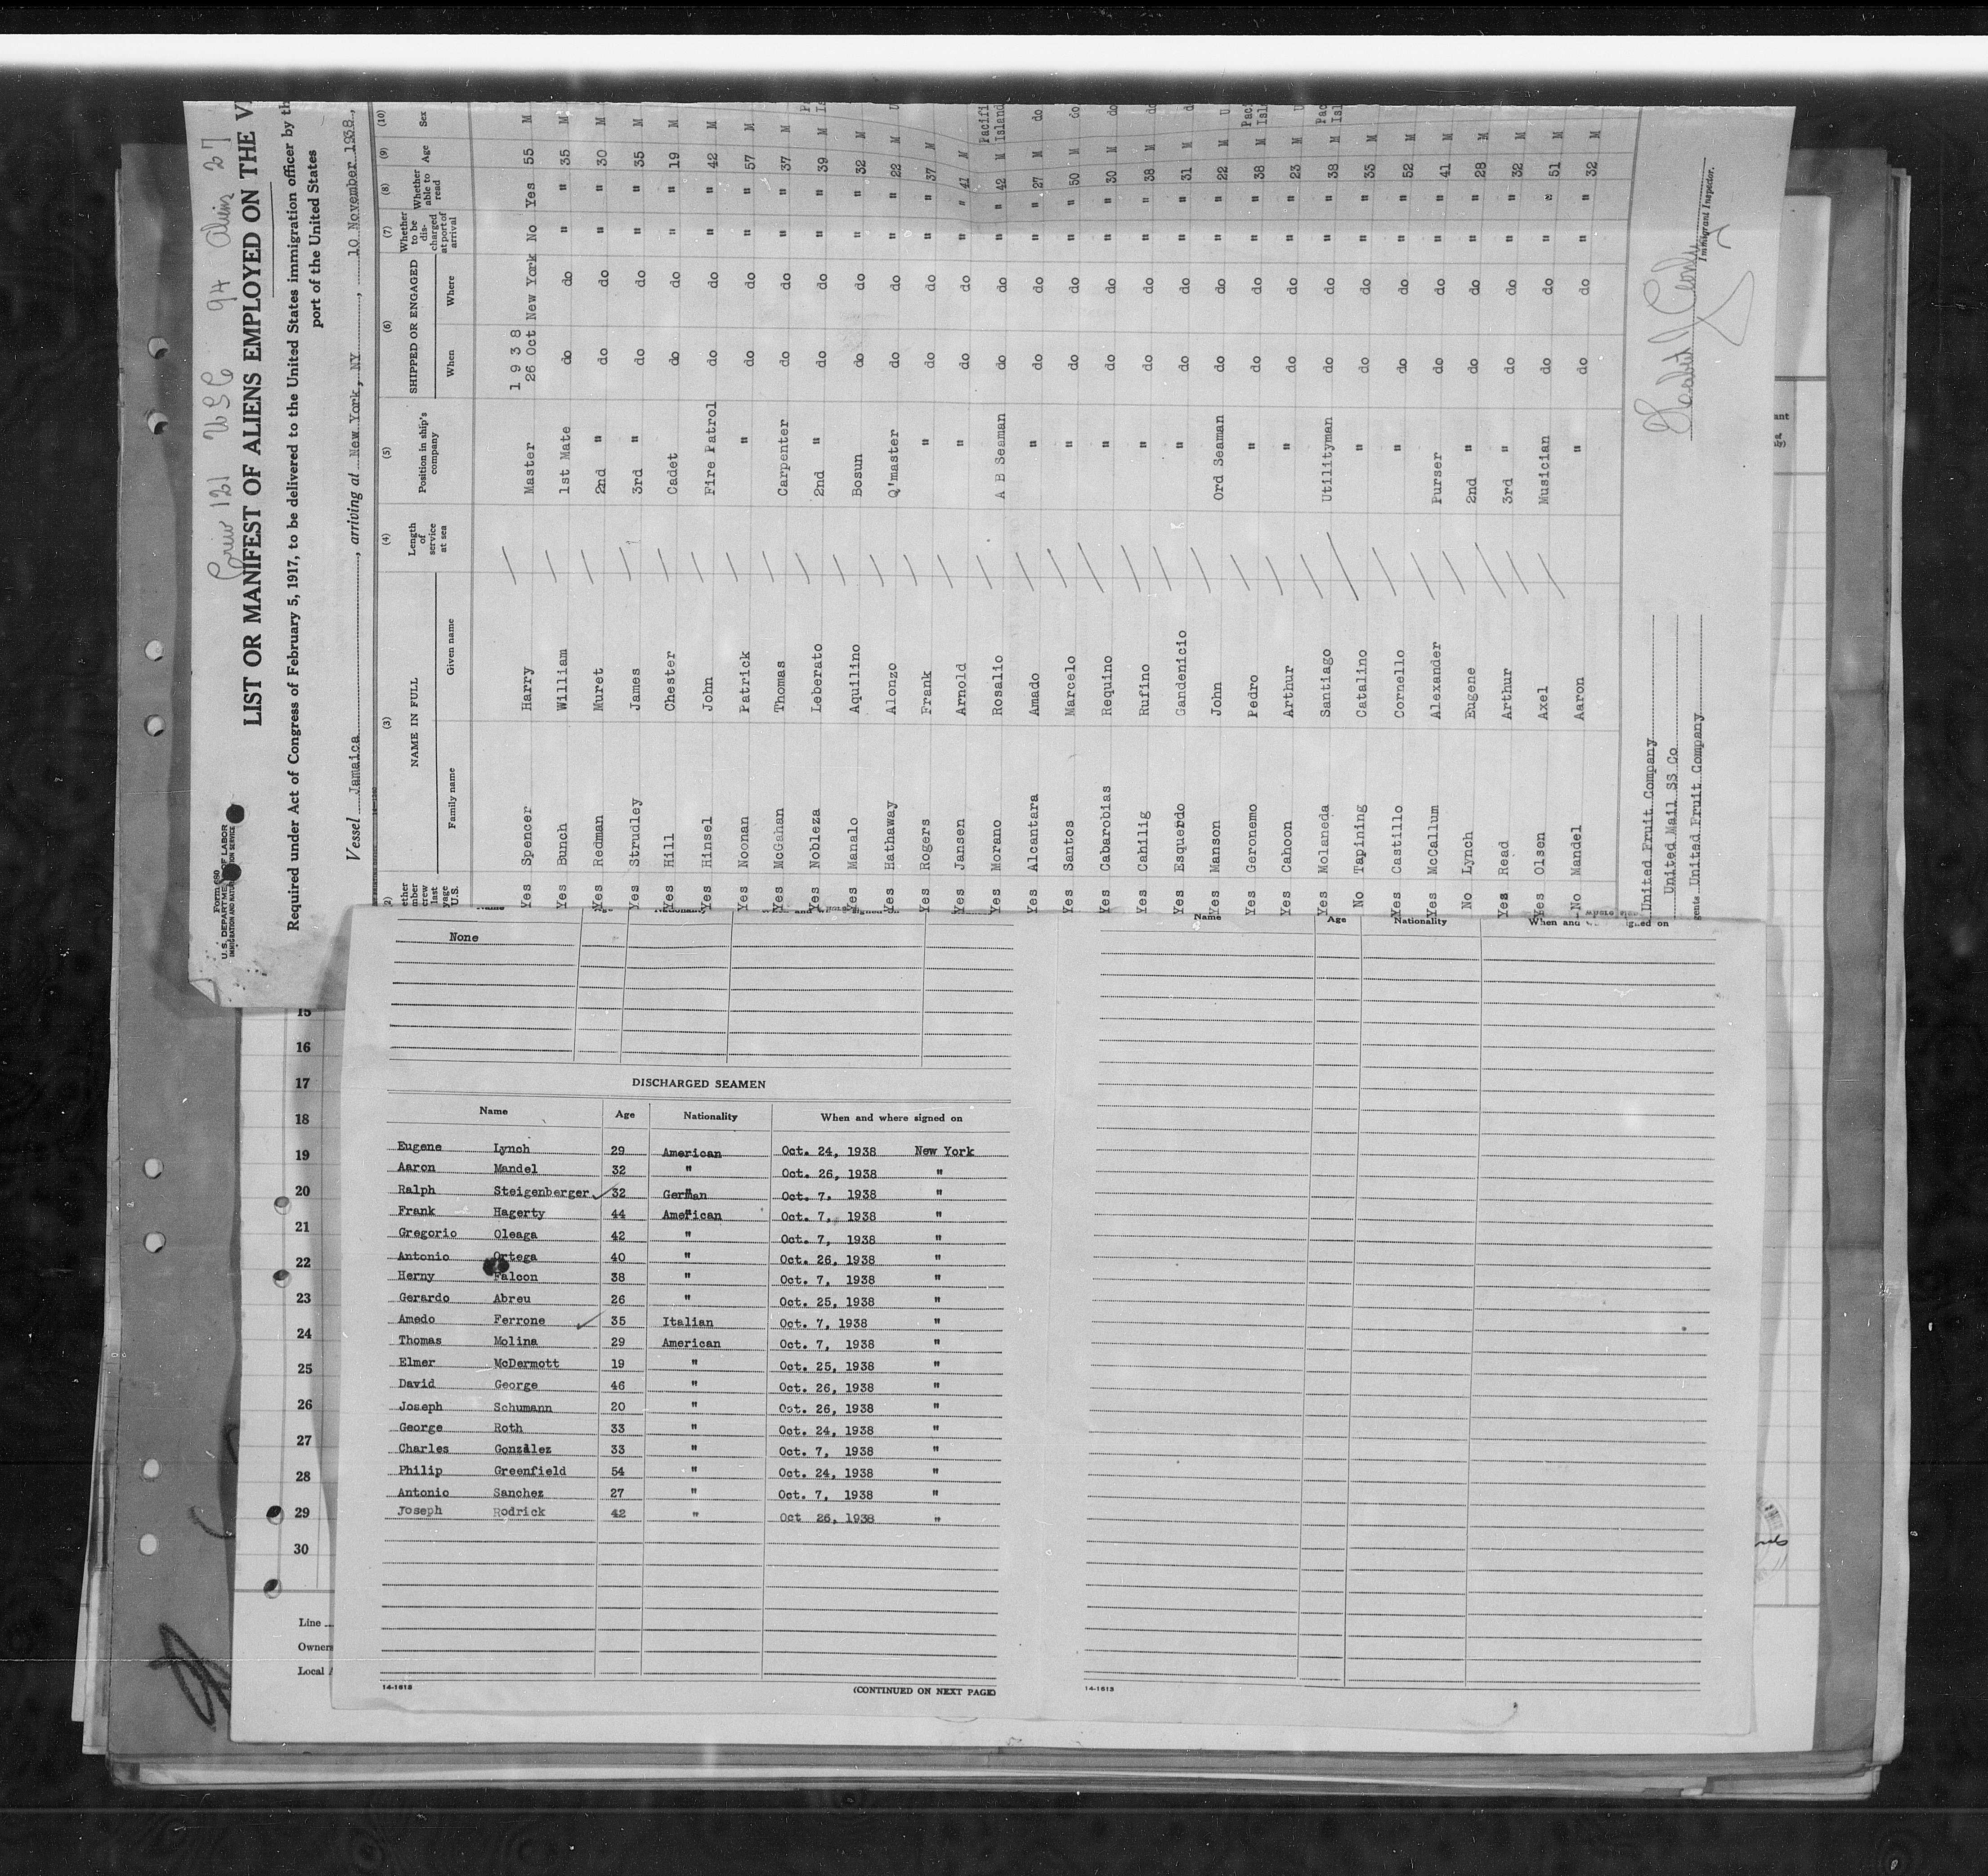 Crew 121 USC 94 Aliens 27
Form 680
U. S. DEPARTMENT OF LABOR
IMMIGRATION AND NATURALIZATION SERVICE
LIST OR MANIFEST OF ALIENS EMPLOYED ON THE
Required under Act of Congress of February 5, 1917, to be delivered to the United States immigration officer by
port of the United States
Vessel Jamaica, arriving at New York, NY, 10 November 1938,
(3) (4) (5) (6) (7) (8) (9) (10)
NAME IN FULL
Family name Given name
Length of service at sea
Position in ship's company
SHIPPED OR ENGAGED
When Where
Whether to be discharged at port of arrival
Whether able to read
Age
Sex
1938
Yes Spencer Harry Master 26 Oct New York No Yes 55 M
Yes Bunch William 1st Mate do do " " 35 M
Yes Redman Muret 2nd " do do " " 30 M
Yes Strudley James 3rd " do do " " 35 M
Yes Hill Chester Cadet do do " " 19 M
Yes Hinsel John Fire Patrol do do " " 42 M
Yes Noonan Patrick " do do " " 57 M
Yes McGahan Thomas Carpenter do do " " 37 M
Yes Nobleza Leberato 2nd " do do " " 39 M
Yes Manalo Aquilino Bosun do do " " 32 M
Yes Hathaway Alonzo Q'master do do " " 22 M
Yes Rogers Frank " do do " " 37 M
Yes Jansen Arnold " do do " " 41 M
Yes Morano Rosalio A B Seaman do do " " 42 M
Yes Alcantara Amado " do do " " 27 M do
Yes Santos Marcelo " do do " " 50 M do
Yes Cabarobias Requino " do do " " 30 M do
Yes Cahilig Rufino " do do " " 38 M do
Yes Esquerdo Gandenicio " do do " " 31 M
Yes Manson John Ord Seaman do do " " 22 M
Yes Geronemo Pedro " do do " " 38 M
Yes Cahoon Arthur " do do " " 23 M
Yes Molaneda Santiago Utilityman do do " " 38 M
No Tapining Catalino " do do " " 35 M
Yes Castillo Cornello " do do " " 52 M
Yes McCallum Alexander Purser do do " " 41 M
No Lynch Eugene 2nd " do do " " 28 M
Yes Read Arthur 3rd " do do " " 32 M
Yes Olsen Axel Musician do do " " 51 M
No Mandel Aaron " do do " " 32 M
United Fruit Company
United Mail SS Co
gents United Fruit Company
Immigrant Inspector.
None
Name Age Nationality When and igned on
DISCHARGED SEAMEN
Name Age Nationality When and where signed on
Eugene Lynch 29 American Oct. 24, 1938 New York
Aaron Mandel 32 " Oct. 26, 1938 "
Ralph Steigenberger 32 German Oct. 7, 1938 "
Frank Hagerty 44 American Oct. 7, 1938 "
Gregorio Oleaga 42 " Oct. 7, 1938 "
Antonio Ortega 40 " Oct. 26, 1938 "
Herny Falcon 38 " Oct. 7, 1938 "
Gerardo Abreu 26 " Oct. 25, 1938 "
Amedo Ferrone 35 Italian Oct. 7, 1938 "
Thomas Molina 29 American Oct. 7, 1938 "
Elmer McDermott 19 " Oct. 25, 1938 "
David George 46 " Oct. 26, 1938 "
Joseph Schumann 20 " Oct. 26, 1938 "
George Roth 33 " Oct. 24, 1938 "
Charles Gonzalez 33 " Oct. 7, 1938 "
Philip Greenfield 54 " Oct. 24, 1938 "
Antonio Sanchez 27 " Oct. 7, 1938 "
Joseph Rodrick 42 " Oct 26, 1938 "
14-1613
(CONTINUED ON NEXT PAGE)
14-1613
15
16
17
18
19
20
21
22
23
24
25
26
27
28
29
30
Line
Owners
Local